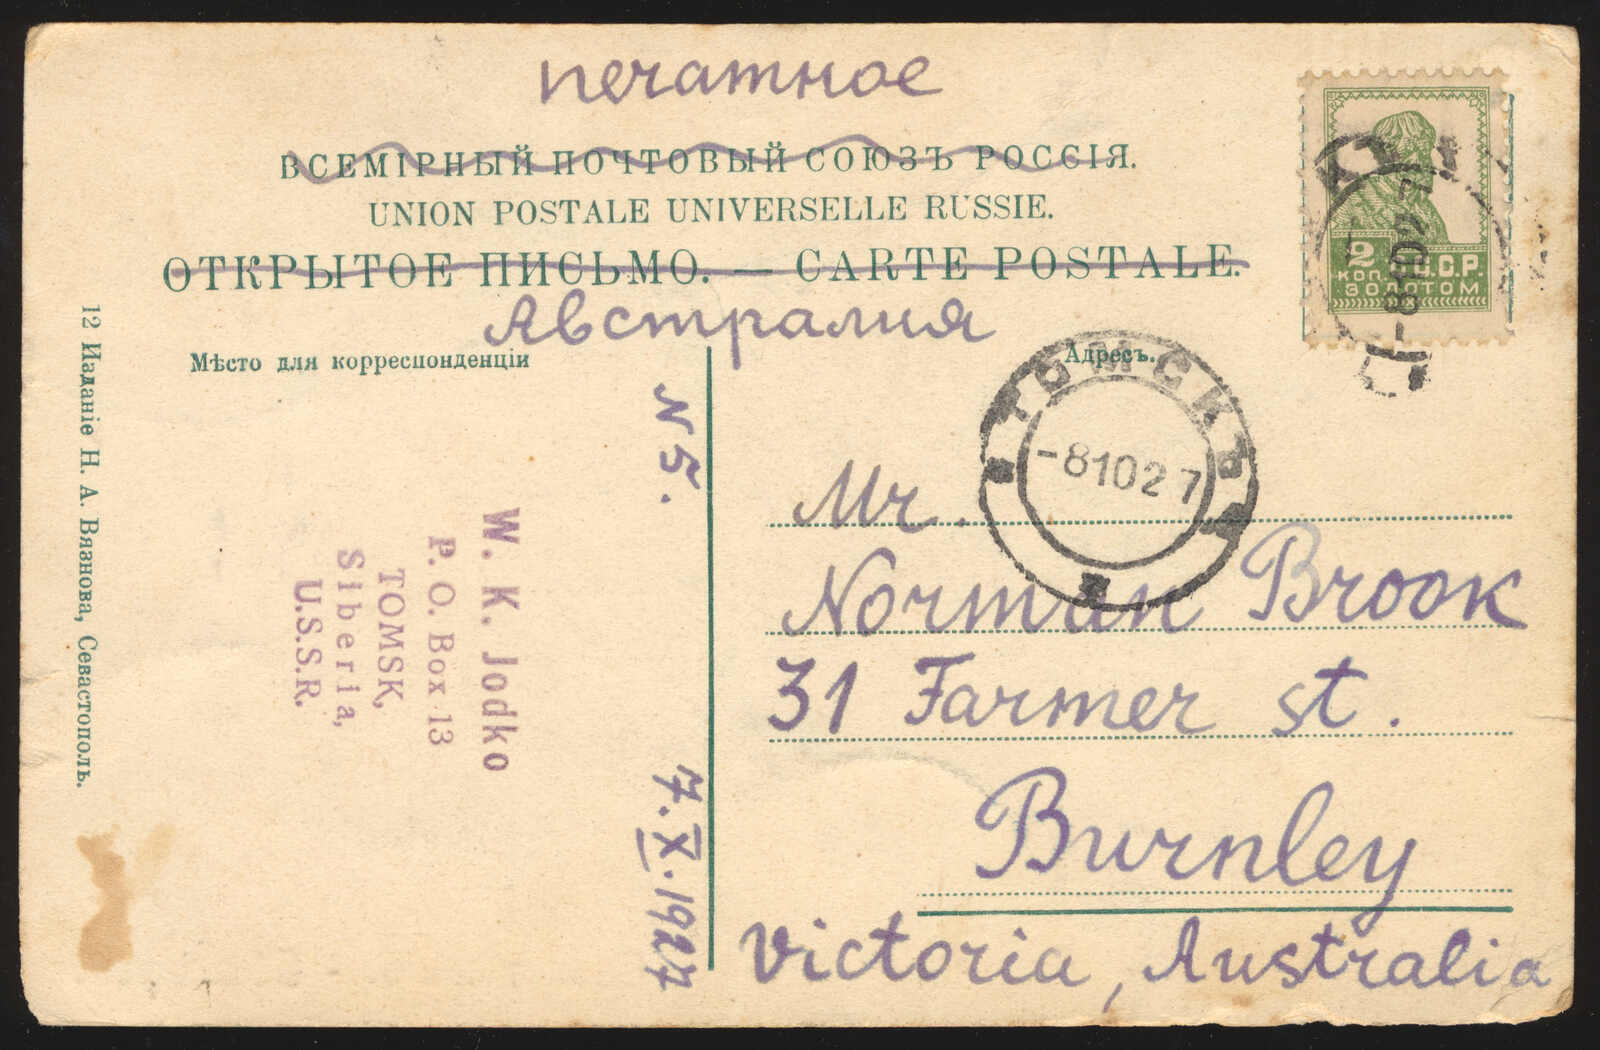 печатное
ВСЕМІРНЫЙ ПОЧТОВЫЙ СОЮЗЪ РОССІЯ.
UNION POSTALE UNIVERSELLE RUSSIE.
ОТКРЫТОЕ ПИСЬМО. — CARTE POSTALE.
Австралия
Мѣсто для корреспонденціи
Адресъ.
2
КОП. С.С.С.Р.
ЗОЛОТОМ
-81027
ТОМСКЪ
-81027
Mr.
Norman Brook
31 Farmer st.
Burnley
Victoria, Australia
N 5.
7.X.1927
W. K. Jodko
P. O. Box 13
TOMSK,
Siberia,
U.S.S.R.
12 Изданіе Н. А. Вязнова, Севастополь.